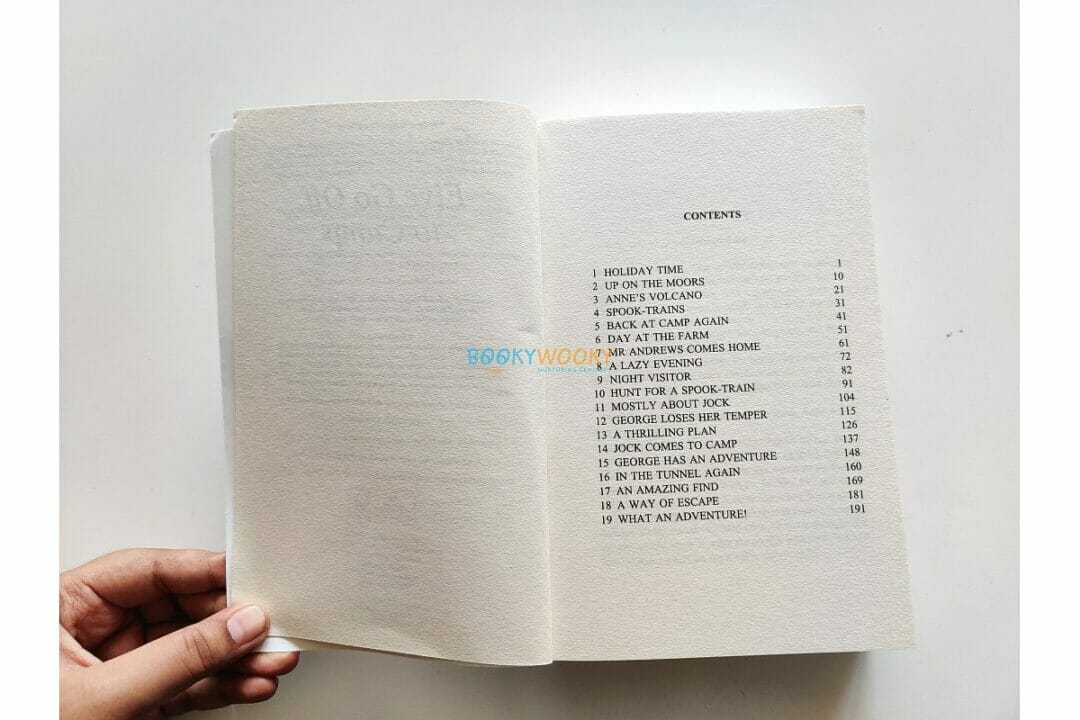 CONTENTS
1 HOLIDAY TIME 1
2 UP ON THE MOORS 10
3 ANNE'S VOLCANO 21
4 SPOOK-TRAINS 31
5 BACK AT CAMP AGAIN 41
6 DAY AT THE FARM 51
7 MR ANDREWS COMES HOME 61
8 A LAZY EVENING 72
9 NIGHT VISITOR 82
10 HUNT FOR A SPOOK-TRAIN 91
11 MOSTLY ABOUT JOCK 104
12 GEORGE LOSES HER TEMPER 115
13 A THRILLING PLAN 126
14 JOCK COMES TO CAMP 137
15 GEORGE HAS AN ADVENTURE 148
16 IN THE TUNNEL AGAIN 160
17 AN AMAZING FIND 169
18 A WAY OF ESCAPE 181
19 WHAT AN ADVENTURE! 191
BOOKYWOOKY
NURTURING